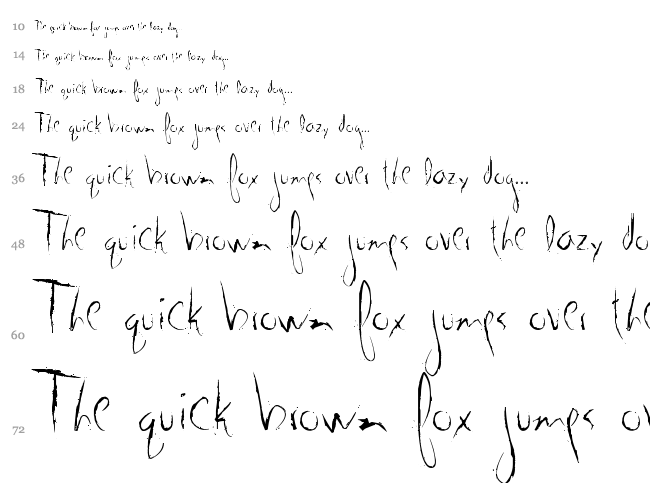 10 The quick brown fox jumps over the lazy dog
14 The quick brown fox jumps over the lazy dog...
18 The quick brown fox jumps over the lazy dog...
24 The quick brown fox jumps over the lazy dog...
36 The quick brown fox jumps over the lazy dog...
48 The quick brown fox jumps over the lazy do
60 The quick brown fox jumps over the
72 The quick brown fox jumps ov